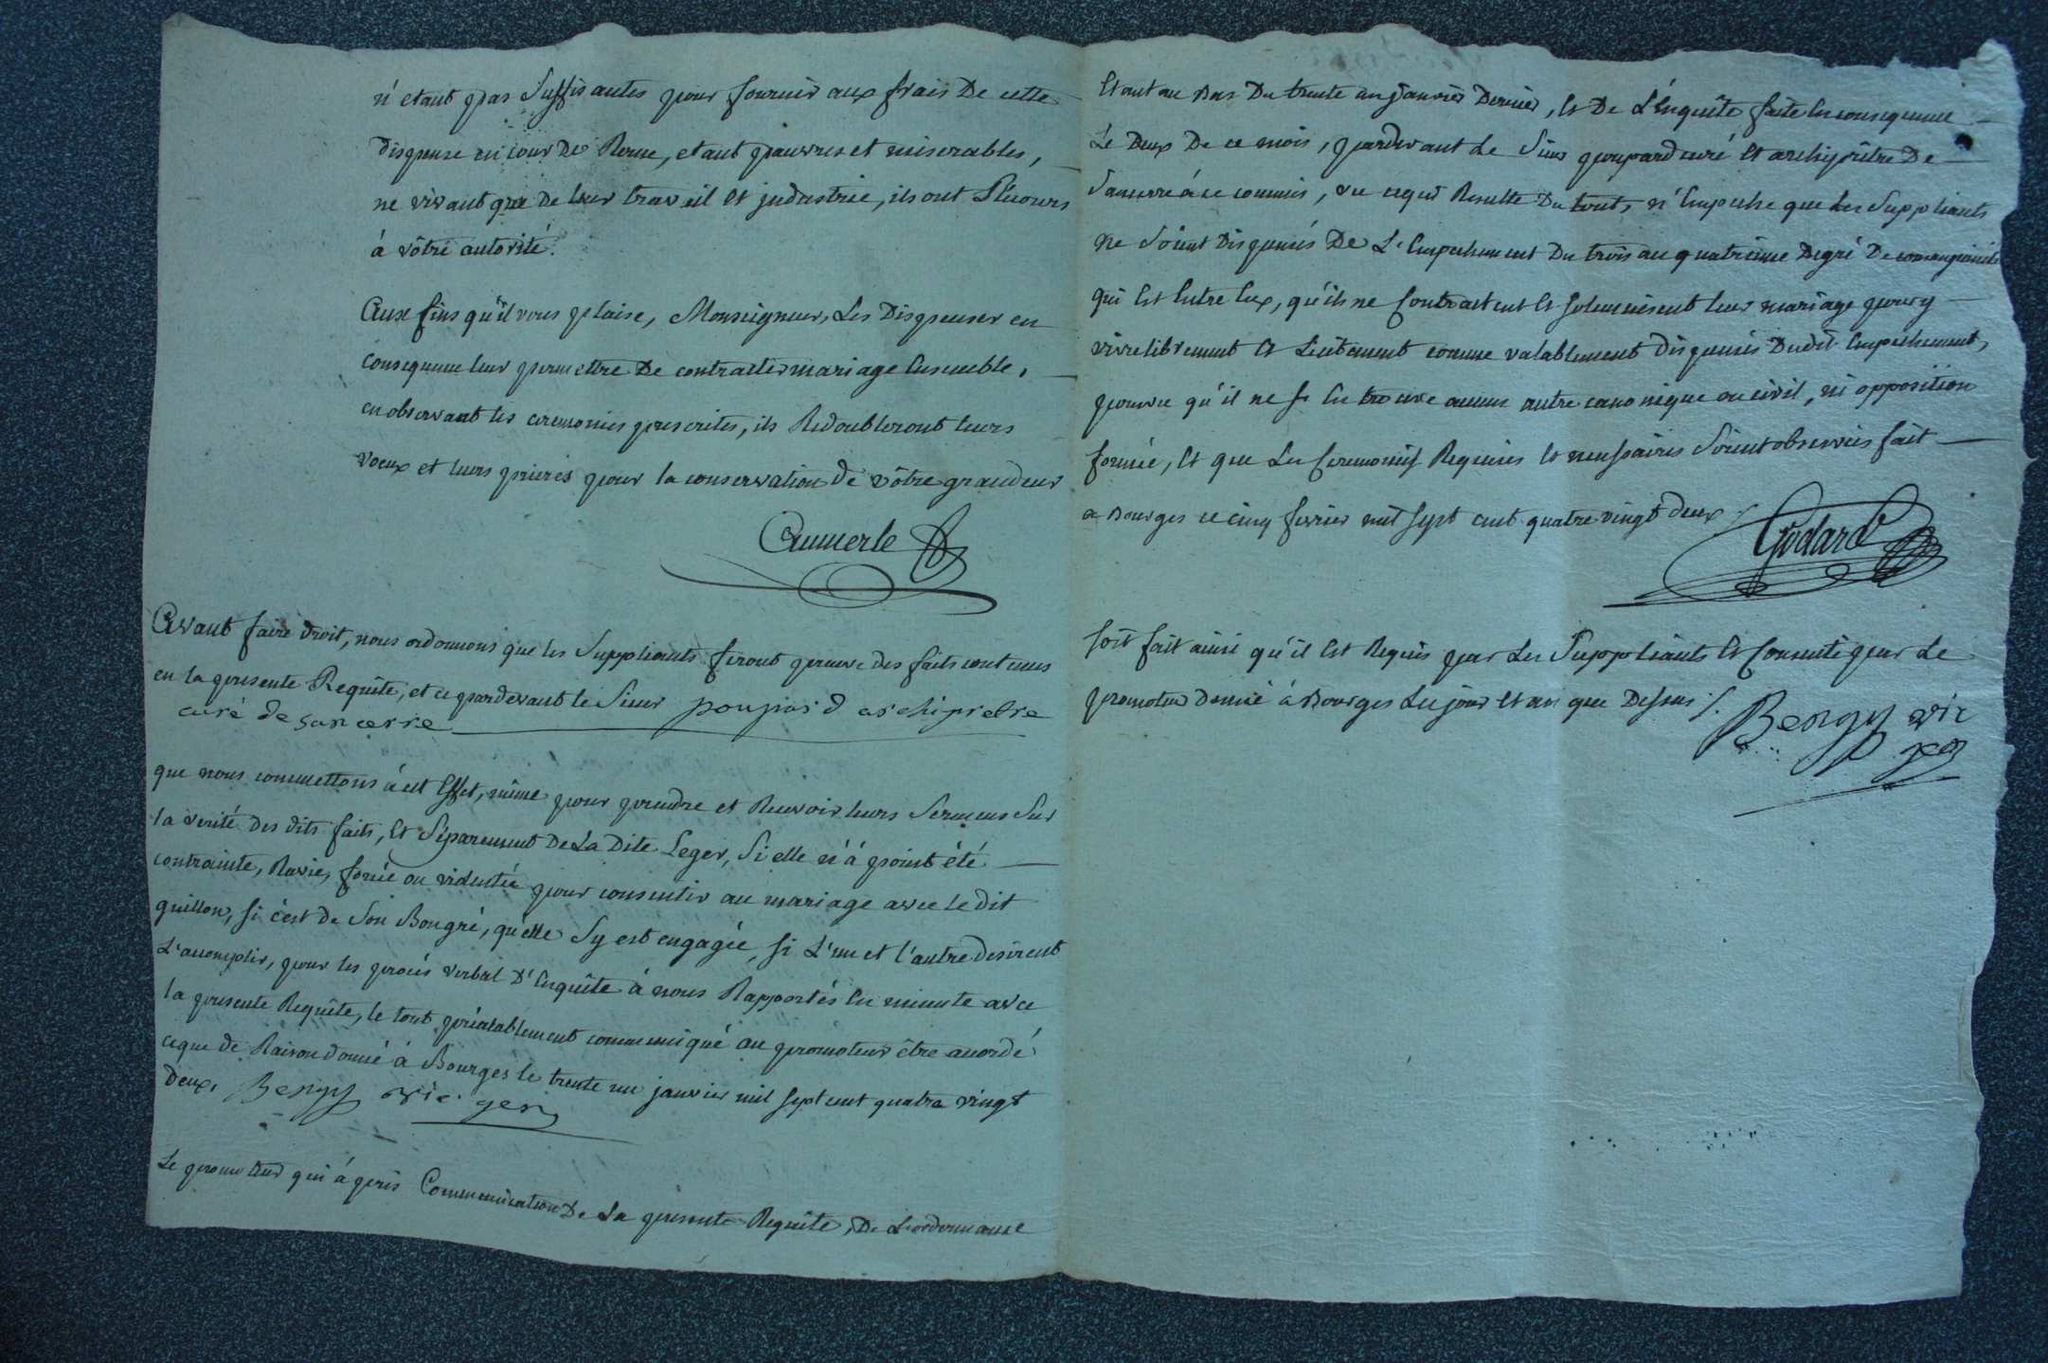 n'etant pas Suffisantes pour fournir aux frais De cette
dispense en cour De Rome, etant pauvres et miserables,
ne vivant que De leur travail et jndustrie, ils ont Récours
à vôtre autorité.
Aux fins qu'il vous plaise, Monseigneur, Les Dispenser en
Consequence leur permettre De contracter mariage Ensemble,
en observant les ceremonies prescrites, ils Redoubleront leurs
voeux et leurs prieres pour la conservation de vôtre grandeur
Aumerle
Avant faire droit, nous ordonnons que les Suppliants feront preuve des faits contenus
en la presente Requête, et ce pardevant le Sieur poupard archipretre
curé de sancerre
que nous commettons à cet Effet, même pour prendre et Recevoir leurs Sermens Sur
la verité des dits faits, Et Séparement De La Dite Leger, Si elle n'à point été
contrainte, Ravie, forcée ou violentée pour consentir au mariage avec le dit
guillon, si c'est de Son Bongré, qu'elle Sy est engagée, si L'un et l'autre desirent
L'accomplir, pour les procés verbal D'Enquête à nous Rapportés En minute avec
la presente Requête, le tout préalablement communiqué au promoteur être accordé
ce que de Raison donné à Bourges le trente un janvier mil sept cent quatre vingt
Deux. Bengy vic. gen
Le promoteur qui à pris Communication De La presente Requête, De L'ordonnance
Etant au Bas Du trente un janvier Dernier, Et De L'Enquête faite En consequence
Le Deux De ce mois, pardevant Le Sieur poupard curé Et archiprêtre De
Sancerre à ce commis, vu ce qui Resulte Du tout, n'Empeche que Les Suppliants
ne Soient Dispensés De L'Empechement Du trois au quatrieme Degré De consanguinité
qui Est Entre Eux, qu'ils ne Contractent Et solemnisent leur mariage pour y
vivre librement Et Licitement comme valablement dispensés Dudit Empêchement,
pourvu qu'il ne s'En trouve aucun autre canonique ou civil, ni opposition
formée, Et que Les Ceremonies Requises Et necessaires Soient observées fait
a Bourges ce cinq fevrier mil sept cent quatre vingt deux
Godard
soit fait ainsi qu'il Est Requis par Les Suppliants Et Consenti par Le
promoteur Donné à Bourges Les jour Et an que Dessus
Bengy vic
gen